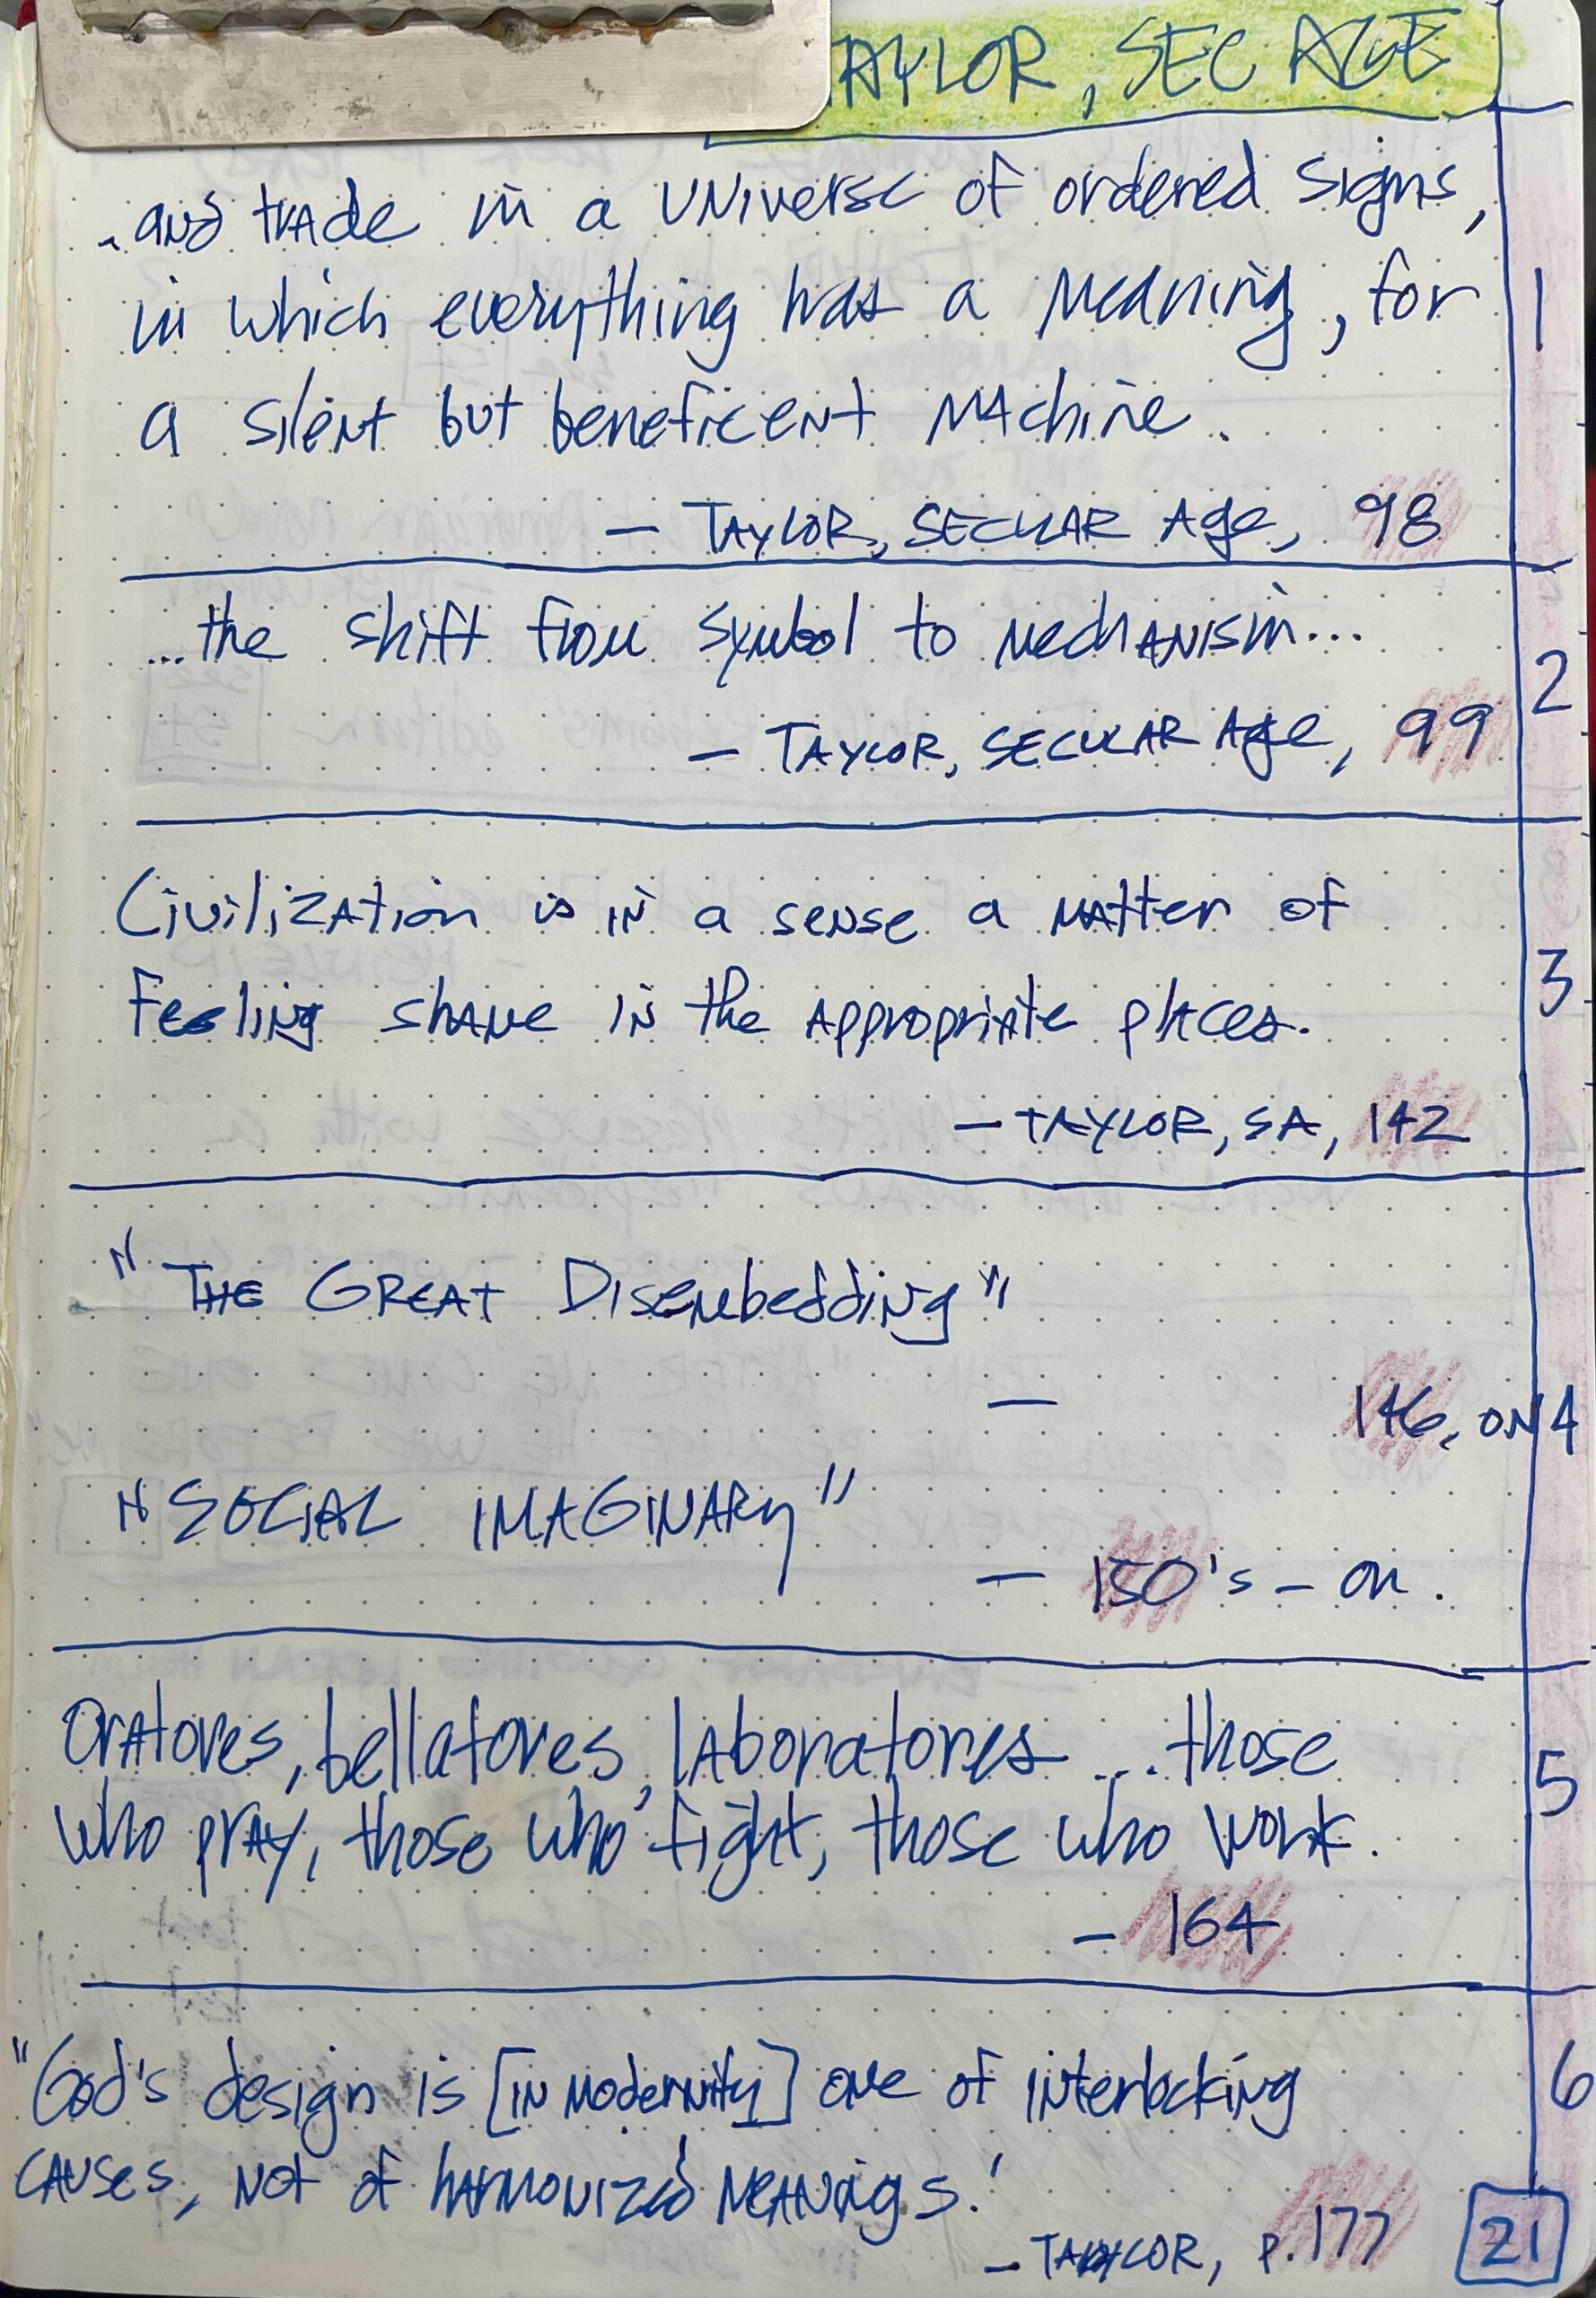 TAYLOR, SEC AGE
and trade in a universe of ordered signs,
in which everything has a meaning, for
a silent but beneficent machine.
— TAYLOR, SECULAR Age, 98
1
...the shift from symbol to mechanism...
— TAYLOR, SECULAR Age, 99
2
Civilization is in a sense a matter of
feeling shame in the appropriate places.
— TAYLOR, SA, 142
3
"THE GREAT Disembedding"
— 146, ON
4
"SOCIAL IMAGINARY"
— 150's – on.
Oratores, bellatores, laboratores ... those
who pray, those who fight, those who work.
– 164
5
"God's design is [in modernity] one of interlocking
causes, not of harmonized meanings.'
– TAYLOR, p. 177
6
21